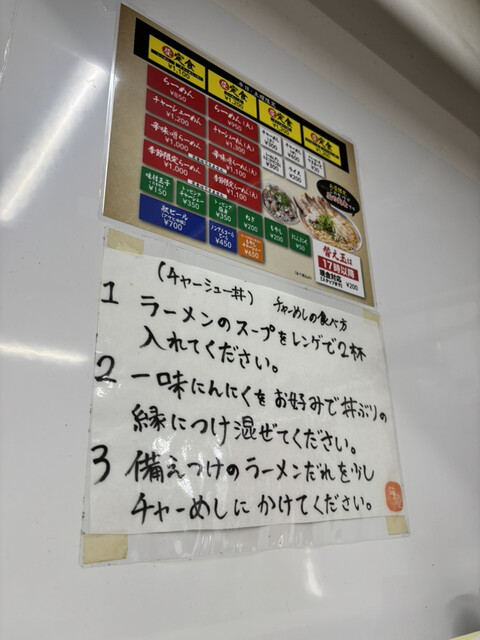 定食
¥1,100
定食
定食
定食
らーめん
¥850
らーめん(大)
¥950
チャーシューめん
¥1,200
チャーシューめん(大)
¥1,300
辛味噌らーめん
¥1,000
辛味噌らーめん(大)
¥1,100
季節限定らーめん
¥1,000
季節限定らーめん(大)
¥1,100
ライス
¥200
味付玉子
¥150
¥350
¥350
ねぎ
¥200
もやし
¥200
にんにく
¥50
瓶ビール
¥700
ノンアルコール
ビール
¥450
¥450
替え玉は
17時以降
現金対応
¥200
(チャーシュー丼) チャーめしの食べ方
1 ラーメンのスープをレンゲで2杯
入れてください。
2 一味にんにくをお好みで丼ぶりの
縁につけ混ぜてください。
3 備えつけのラーメンだれを少し
チャーめしにかけてください。